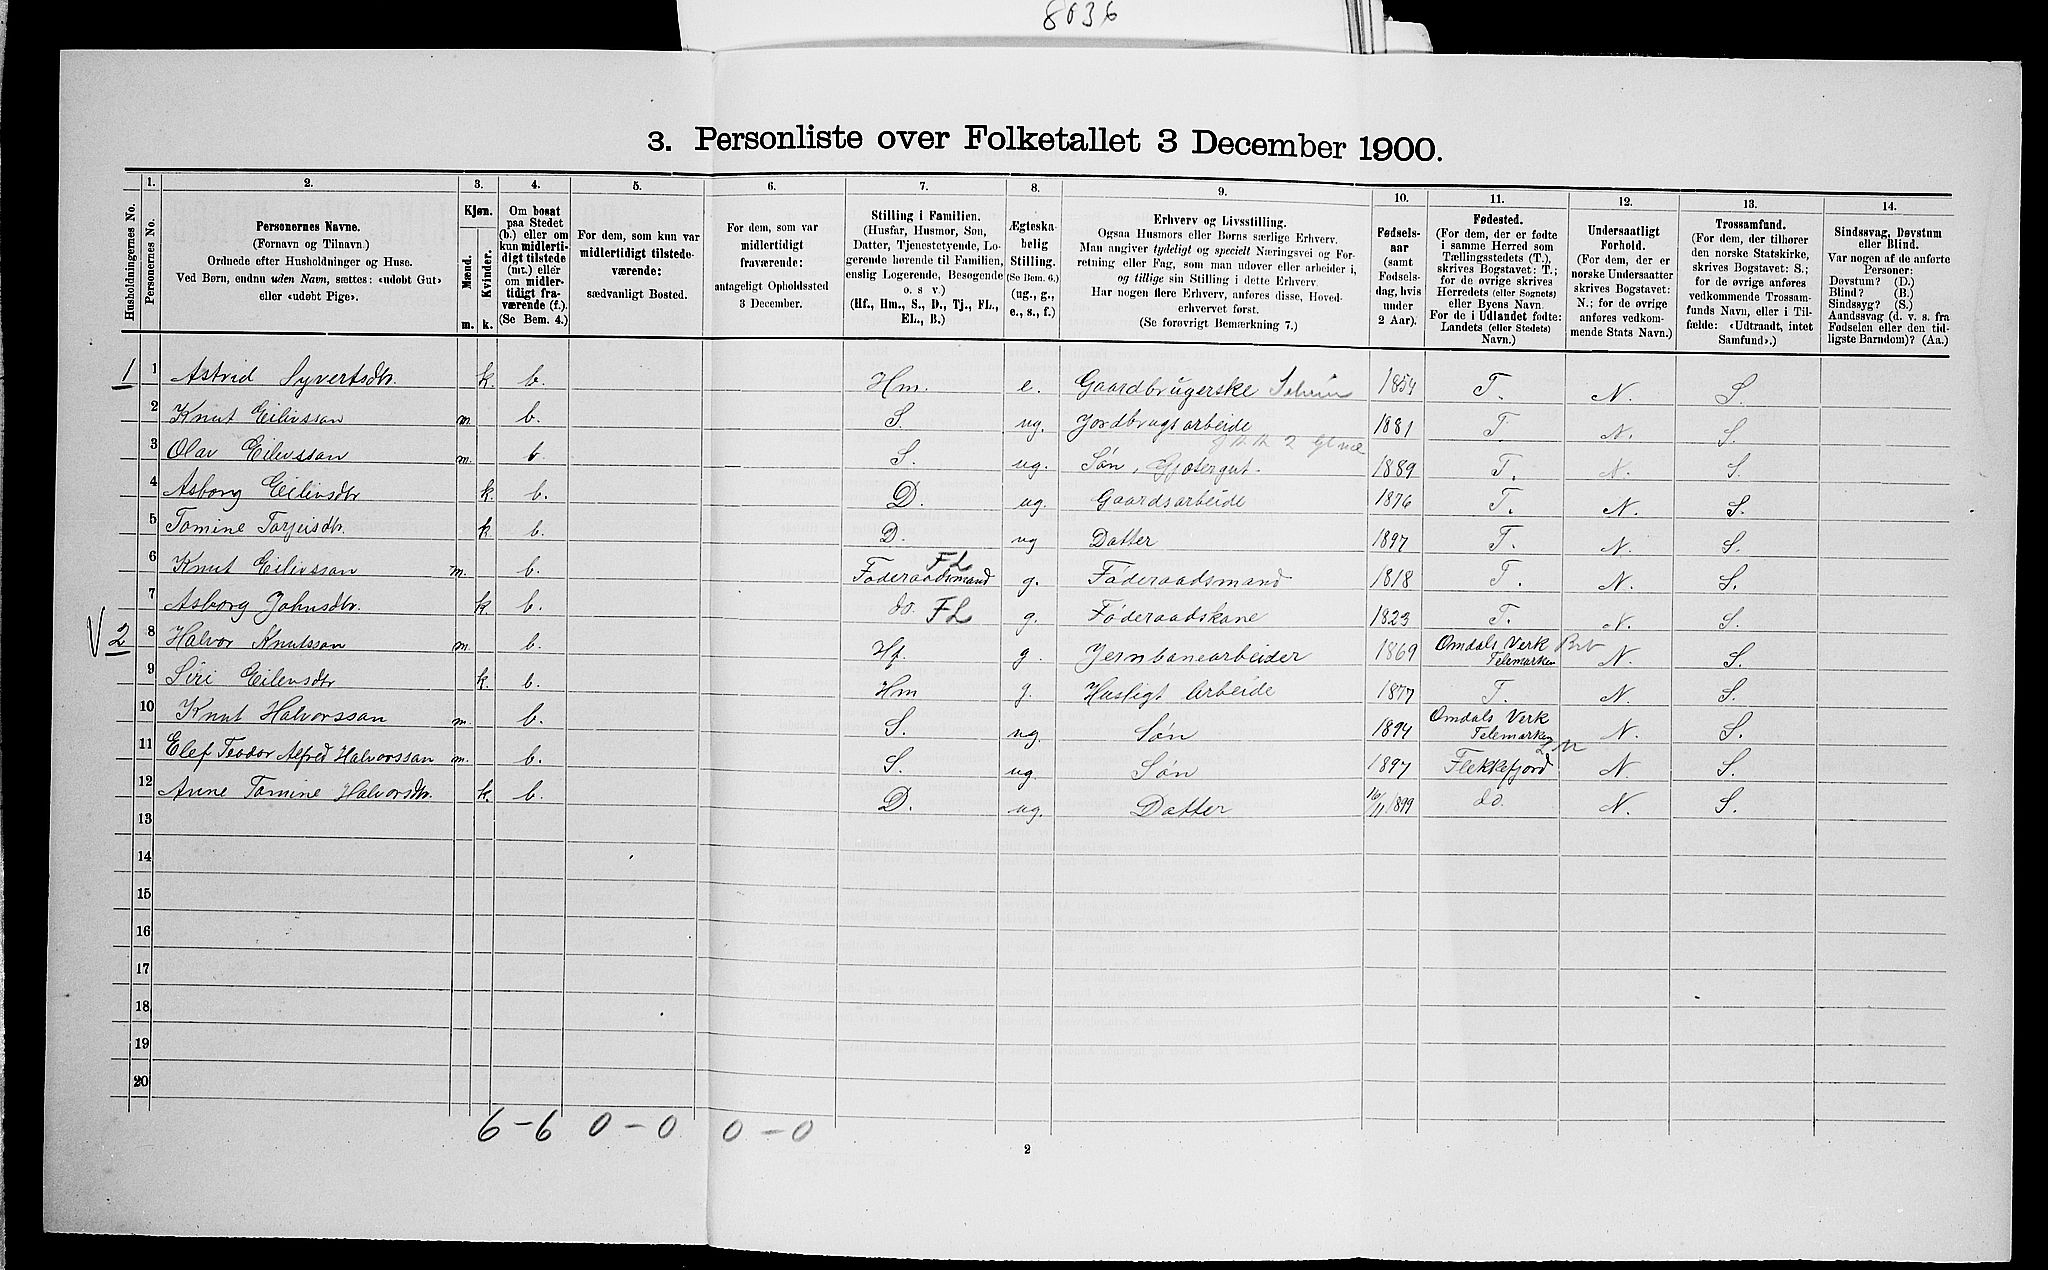 8036
3. Personliste over Folketallet 3 December 1900.
Husholdningernes No.
1.
Personernes No.
2.
Personernes Navne.
(Fornavn og Tilnavn.)
Ordnede efter Husholdninger og Huse.
Ved Børn, endnu uden Navn, sættes: «udøbt Gut»
eller «udøbt Pige».
3.
Kjøn.
Mænd.
Kvinder.
m. k.
4.
Om bosat
paa Stedet
(b.) eller om
kun midlerti-
digt tilstede
(mt.) eller
om midler-
tidigt fra-
værende (f.).
(Se Bem. 4.)
5.
For dem, som kun var
midlertidigt tilstede-
værende:
sædvanligt Bosted.
6.
For dem, som var
midlertidigt
fraværende:
antageligt Opholdssted
3 December.
7.
Stilling i Familien.
(Husfar, Husmor, Søn,
Datter, Tjenestetyende, Lo-
gerende hørende til Familien,
enslig Logerende, Besøgende
o. s v.)
(Hf., Hm., S., D., Tj., FL.,
EL., B.)
8.
Ægteska-
belig
Stilling.
(Se Bem. 6.)
(ug., g.,
e., s., f.)
9.
Erhverv og Livsstilling.
Ogsaa Husmors eller Børns særlige Erhverv.
Man angiver tydeligt og specielt Næringsvei og For-
retning eller Fag, som man udøver eller arbeider i,
og tillige sin Stilling i dette Erhverv.
Har nogen flere Erhverv, anføres disse, Hoved-
erhvervet først.
(Se forøvrigt Bemærkning 7.)
10.
Fødsels-
aar
(samt
Fødsels-
dag, hvis
under
2 Aar).
11.
Fødested.
(For dem, der er fødte
i samme Herred som
Tællingsstedets (T.),
skrives Bogstavet: T.;
for de øvrige skrives
Herredets (eller Sognets)
eller Byens Navn.
For de i Udlandet fødte:
Landets (eller Stedets)
Navn.)
12.
Undersaatligt
Forhold.
(For dem, der er
norske Undersaatter
skrives Bogstavet:
N.; for de øvrige
anføres vedkom-
mende Stats Navn.)
13.
Trossamfund.
(For dem, der tilhører
den norske Statskirke,
skrives Bogstavet: S.;
for de øvrige anføres
vedkommende Trossam-
funds Navn, eller i Til-
fælde: «Udtraadt, intet
Samfund».)
14.
Sindssvag, Døvstum
eller Blind.
Var nogen af de anførte
Personer:
Døvstum? (D.)
Blind? (B.)
Sindssyg? (S.)
Aandssvag (d. v. s. fra
Fødselen eller den tid-
ligste Barndom)? (Aa.)
1 1 Astrid Syvertsdtr. k. b. Hm. e. Gaardbrugerske 1854 T. N. S.
2 Knut Eilivssan m. b. S. ug. Jordbrugsarbeide 1881 T. N. S.
3 Olav Eilevssan m. b. S. ug. Søn, Gjætergut. 1889 T. N. S.
4 Asborg Eilivsdtr k. b. D. ug. Gaardsarbeide 1876 T. N. S.
5 Tomine Torjeisdtr. k b. D. ug Datter 1897 T. N. S.
6 Knut Eilivssan m. b. Føderaadsmand FL g. Føderaadsmand 1818 T. N. S.
7 Asborg Johnsdtr. k b. do. FL g. Føderaadskone 1823 T. N. S.
V 2 8 Halvor Knutssan m. b. Hf. g. Jernbanearbeider 1869 Omdals Verk Telemarken N. S.
9 Siri Eilevsdtr k. b. Hm g. Husligt Arbeide 1877 T. N. S.
10 Knut Halvorssan m. b. S. ug. Søn 1894 Omdals Verk Telemarken N. S.
11 Elef Teodor Alfred Halvorssan m. b. S. ug. Søn 1897 Flekkefjord N. S.
12 Anne Tomine Halvorsdtr. k. b. D. ug. Datter 16/11 1899 do. N. S.
13
14
15
16
17
18
19
20
6-6 0-0 0-0
2